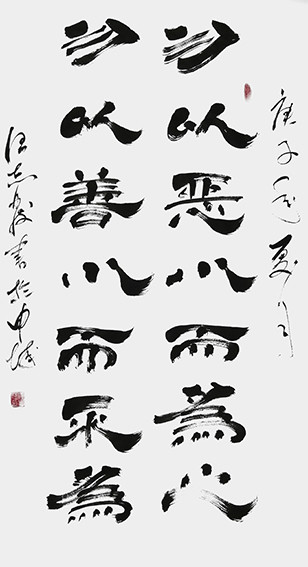 庚子年夏月
勿以恶小而為之
勿以善小而不為
書於申城